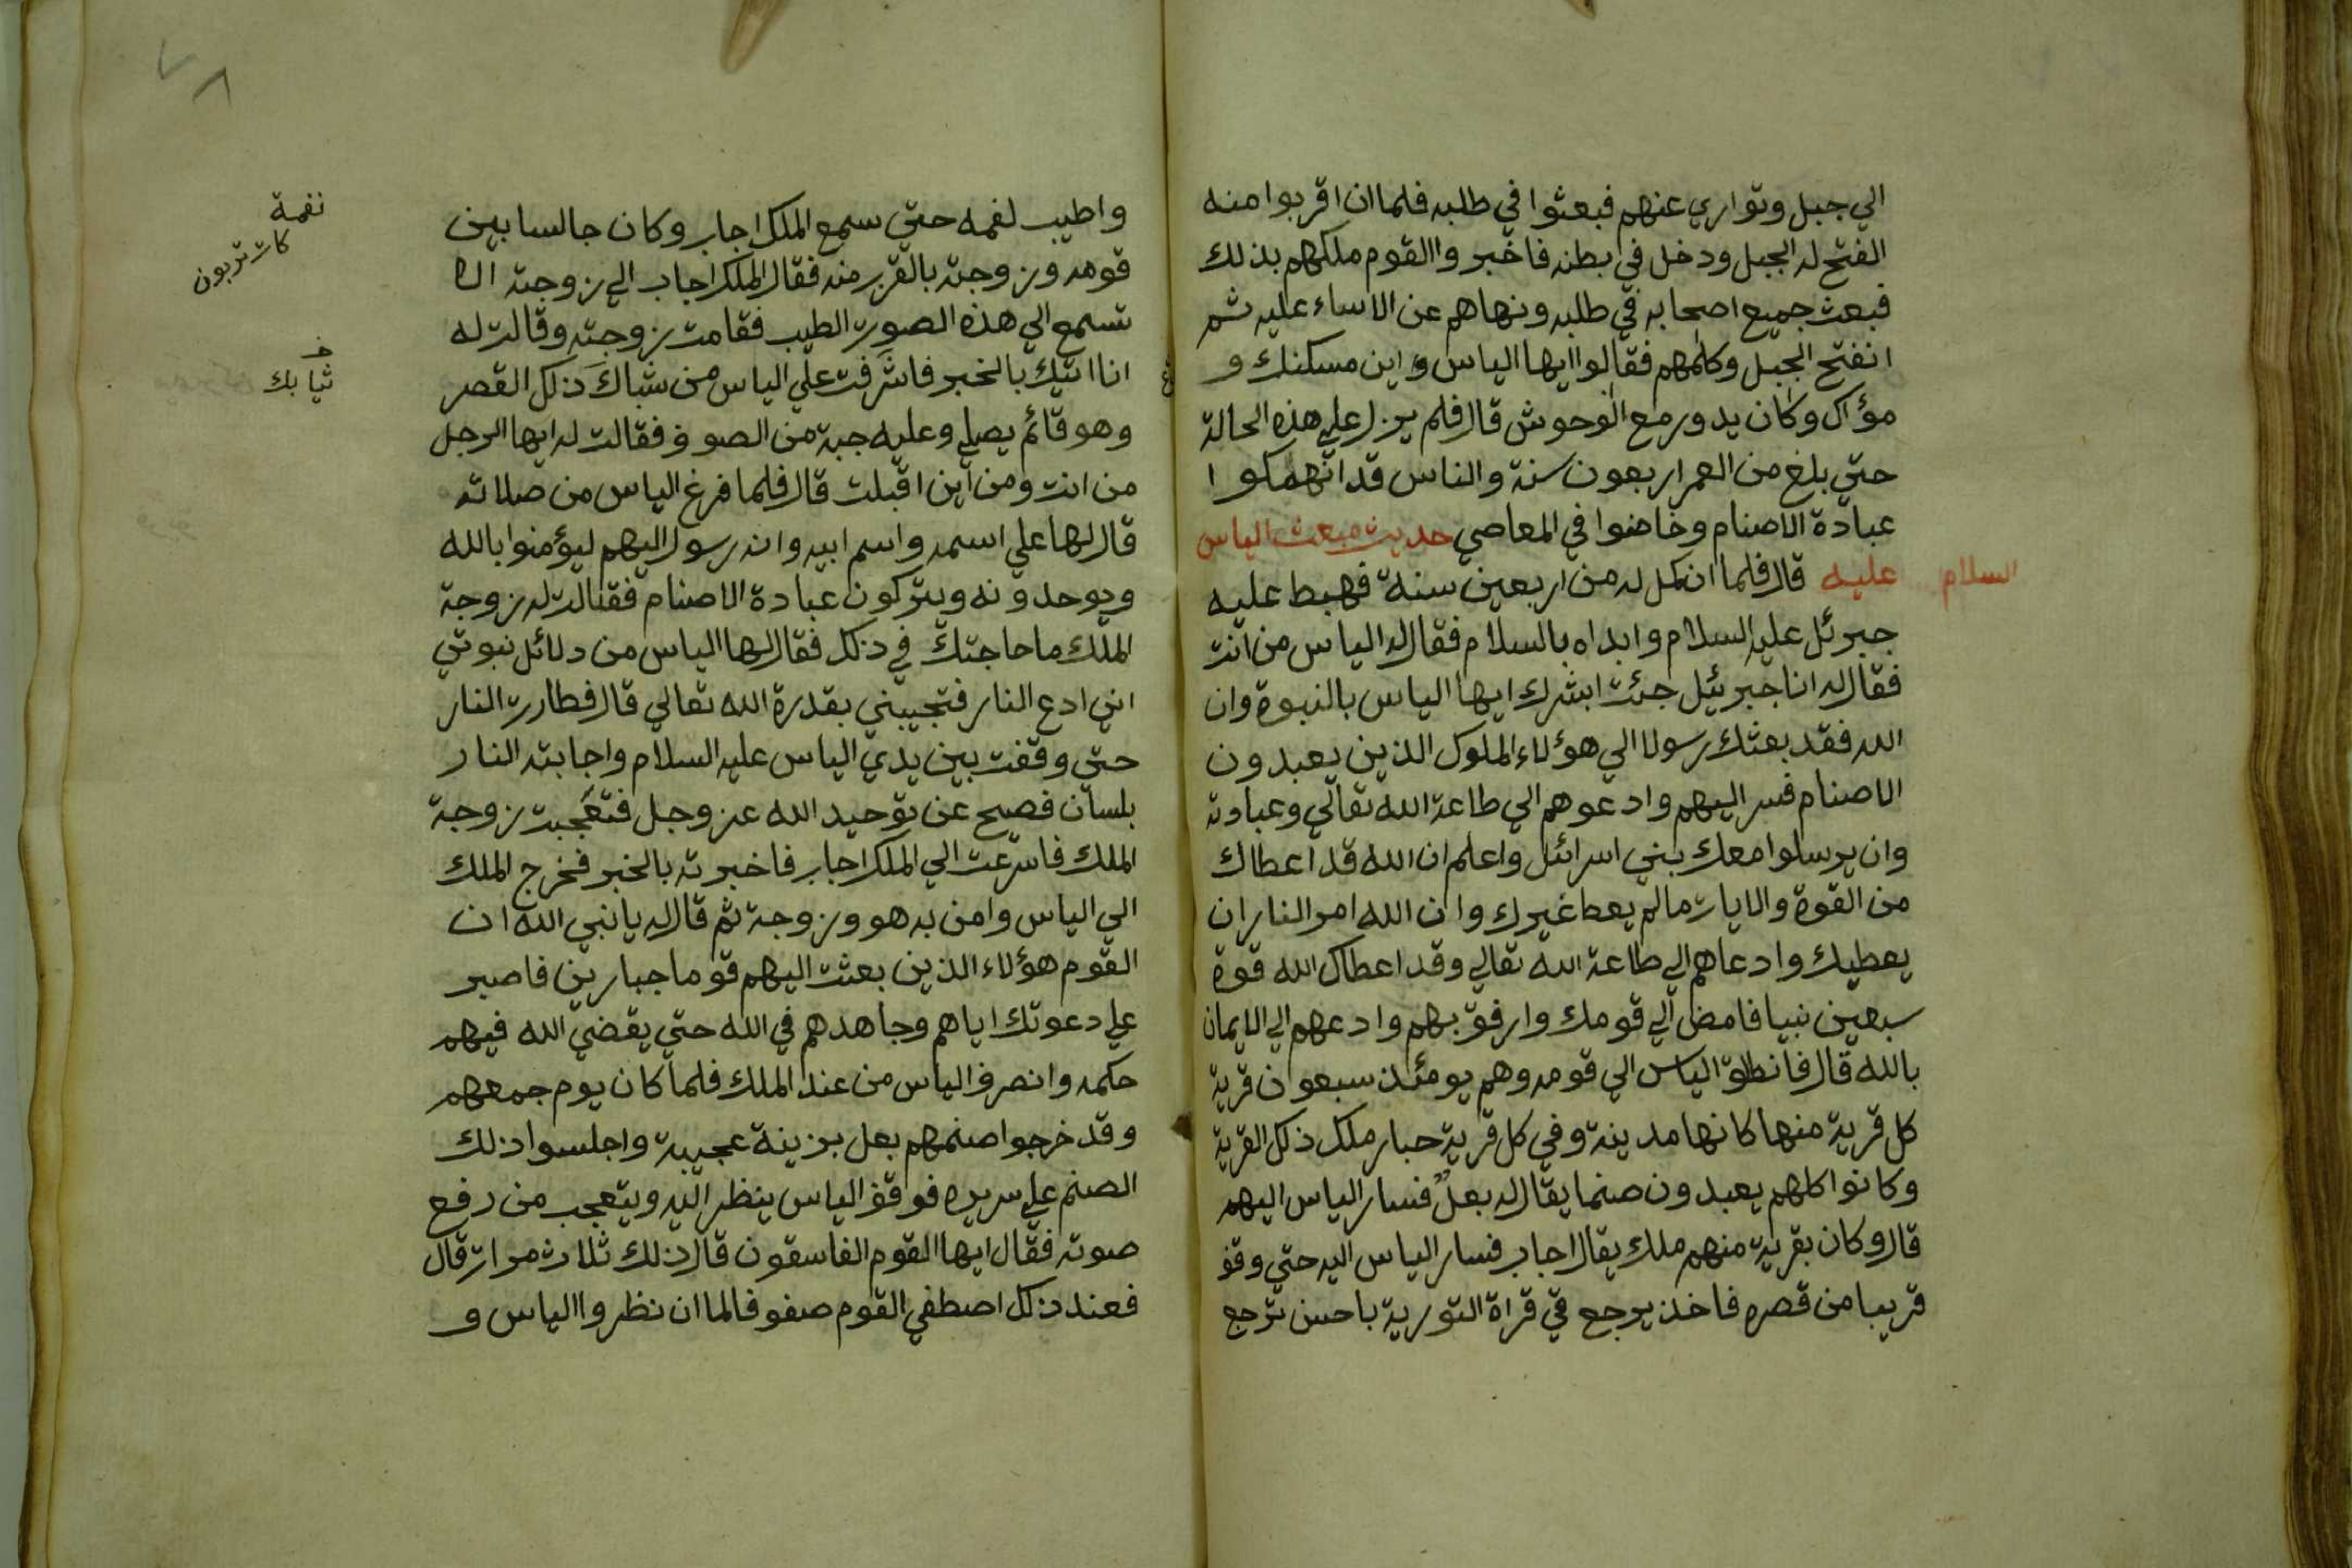 الي جبل وتواري عنهم فبعثوا في طلبه فلما ان اقربوا منه
الفتح له الجبل ودخل في بطنه فاخبروا القوم ملكهم بذلك
فبعث جميع اصحابه في طلبه ونهاهم عن الاساء عليه ثم
انفتح الجبل وكلمهم فقالوا ايها الياس واين مسكنك و
مؤاك وكان يدور مع الوحوش قال فلم يزل علي هذه الحالة
حتي بلغ من العمر اربعون سنة والناس قد انهمكوا
عبادة الاصنام وخاضوا في المعاصي حديث مبعث الياس
عليه السلام قال فلما ان كمل له من اربعين سنة فهبط عليه
جبرئل عليه السلام وابداه بالسلام فقال له الياس من انت
فقال له انا جبرئيل جئت ابشرك ايها الياس بالنبوة وان
الله فقد بعثك رسولا الي هؤلاء الملوك الذين يعبدون
الاصنام فسر اليهم وادعوهم الي طاعة الله تعالي وعبادته
وان يرسلوا معك بني اسرائل واعلم ان الله قد اعطاك
من القوة والايات مالم يعط غيرك وان الله امر النار ان
يعطيك وادعاهم الي طاعة الله تعالي وقد اعطاك الله قوة
سبعين نبيا فامض الي قومك وارفق بهم وادعهم الي الايمان
بالله قال فانطلق الياس الي قومه وهم يومئذ سبعون قرية
كل قرية منها كانها مدينة وفي كل قرية جبار ملك ذلك القرية
وكانوا كلهم يعبدون صنما يقال له بعل فسار الياس اليهم
قال وكان بقرية منهم ملك يقال اجاب فسار الياس اليه حتي وقف
قريبا من قصره فاخذ يرجع في قراة التورية باحسن ترجع
واطيب لغمه حتي سمع الملك اجاب وكان جالسا بين
قومه وزوجته بالقرب منه فقال الملك اجاب الي زوجته الا
تسمع الي هذه الصوت الطيب فقامت زوجته وقالت له
انا اتيك بالخبر فاشرفت علي الياس من شباك ذلك القصر
وهو قائم يصلي وعليه جبة من الصوف فقالت له ايها الرجل
من انت ومن اين اقبلت قال فلما فرغ الياس من صلاته
قال لها علي اسمه واسم ابيه وانه رسول اليهم ليؤمنوا بالله
ويوحدونه ويتركون عبادة الاصنام فقالت له زوجة
الملك ما حاجتك في ذلك فقال لها الياس من دلائل نبوتي
اني ادع النار فتجيبني بقدرة الله تعالي قال فطارت النار
حتي وقفت بين يدي الياس عليه السلام واجابته النار
بلسان فصيح عن توحيد الله عز وجل فتعجبت زوجة
الملك فاسرعت الي الملك اجاب فاخبرته بالخبر فخرج الملك
الي الياس وامن به هو وزوجة ثم قال له يا نبي الله ان
القوم هؤلاء الذين بعثت اليهم قوما جبارين فاصبر
علي دعوتك اياهم وجاهدهم في الله حتي يقضي الله فيهم
حكمه وانصرف الياس من عند الملك فلما كان يوم جمعهم
وقد خرجوا صنمهم بعل بزينة عجيبة واجلسوا ذلك
الصنم علي سريره فوقف الياس ينظر اليه ويتعجب من رفع
صوته فقال ايها القوم الفاسقون قال ذلك ثلاث مرات قال
فعند ذلك اصطفي القوم صفوفا لما ان نظروا الياس و
نغمة
ثيابك